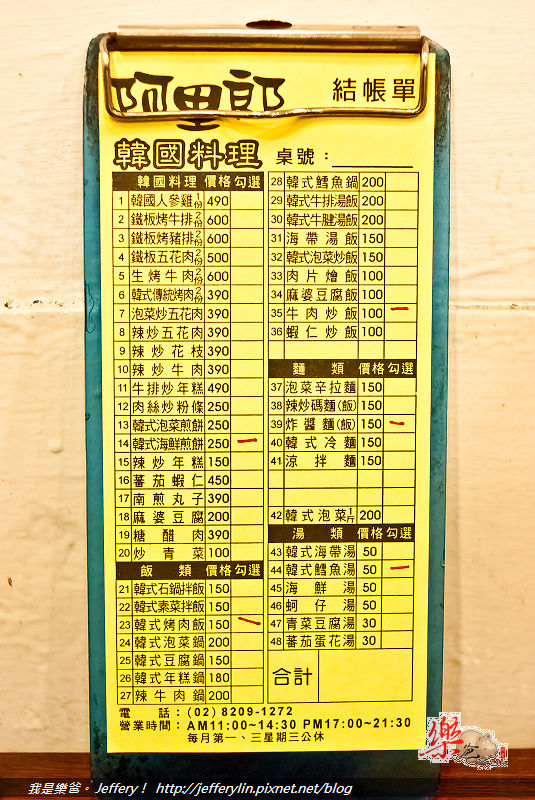 阿里郎 結帳單
韓國料理 桌號：
韓國料理 價格 勾選
1 韓國人參雞1份 490
2 鐵板烤牛排2份 600
3 鐵板烤豬排2份 600
4 鐵板五花肉2份 500
5 生烤牛肉2份 600
6 韓式傳統烤肉2份 390
7 泡菜炒五花肉 390
8 辣炒五花肉 390
9 辣炒花枝 390
10 辣炒牛肉 390
11 牛排炒年糕 490
12 肉絲炒粉條 250
13 韓式泡菜煎餅 250
14 韓式海鮮煎餅 250 一
15 辣炒年糕 150
16 蕃茄蝦仁 450
17 南煎丸子 390
18 麻婆豆腐 200
19 糖醋肉 390
20 炒青菜 100
飯類 價格 勾選
21 韓式石鍋拌飯 150
22 韓式素菜拌飯 150
23 韓式烤肉飯 150 一
24 韓式泡菜鍋 200
25 韓式豆腐鍋 150
26 韓式年糕鍋 180
27 辣牛肉鍋 200
28 韓式鱈魚鍋 200
29 韓式牛排湯飯 200
30 韓式牛腱湯飯 200
31 海帶湯飯 150
32 韓式泡菜炒飯 150
33 肉片燴飯 100
34 麻婆豆腐飯 100
35 牛肉炒飯 100 一
36 蝦仁炒飯 100
麵類 價格 勾選
37 泡菜辛拉麵 150
38 辣炒碼麵(飯) 150
39 炸醬麵(飯) 150 一
40 韓式冷麵 150
41 涼拌麵 150
42 韓式泡菜1斤 200
湯類 價格 勾選
43 韓式海帶湯 50
44 韓式鱈魚湯 50 一
45 海鮮湯 50
46 蚵仔湯 50
47 青菜豆腐湯 30
48 蕃茄蛋花湯 30
合計
電話：(02) 8209-1272
營業時間：AM11:00~14:30 PM17:00~21:30
每月第一、三星期三公休
樂爸
我是樂爸。Jeffery！ http://jefferylin.pixnet.net/blog